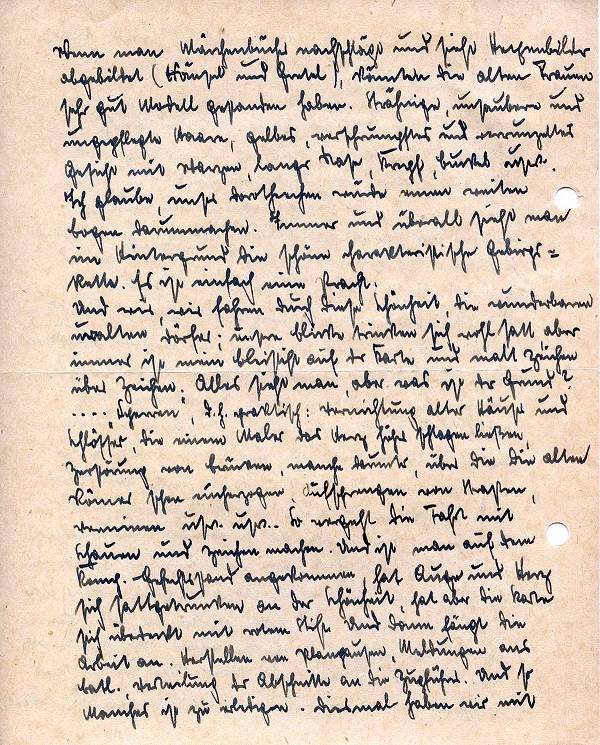 Wenn man Märchenbücher nachschlägt und sieht Hexenbilder
abgebildet (Hänsel und Gretel), könnten die alten Frauen
sehr gut Modell gestanden haben. Strähnige, unsaubere und
ungepflegte Haare, gelbes, verschrumpftes und verrunzeltes
Gesicht mit Warzen, lange Nase, Kropf, buckel usw.
Ich glaube, unser Dorthechen würde einen weiten
bogen darummachen. Immer und überall sieht man
im Hintergrund die schöne charakteristische Gebirgs=
kette. Es ist einfach eine Pracht.
Und wir, wir fahren durch diese Schönheit, die wunderbaren
uralten Dörfer; unsere blicke trinken sich wohl satt aber
immer ist mein bleistift auf der Karte und malt Zeichen
über Zeichen. Alles sieht man, aber was ist der Grund?
.... "Sperren", d.h. praktisch: Vernichtung alter Häuser und
Schlösser, die einem Maler das Herz höher schlagen ließen,
Zerstörung von brücken, manche darunter, über die die alten
Römer schon umherzogen, Aufsprengen von Straßen,
verminen usw. usw.. So vergeht die Fahrt mit
Schauen und Zeichen machen. Und ist man auf dem
Komp.-Gefechtsstand angekommen, hat Auge und Herz
sich sattgetrunken an der Schönheit, hat aber die Karte
sich überdeckt mit rotem Stift. Und dann fängt die
Arbeit an. Herstellen von Planpausen, Meldungen ans
batl., Verteilung der Abschnitte an die Zugführer. Und so
Manches ist zu erledigen. Diesmal haben wir mit